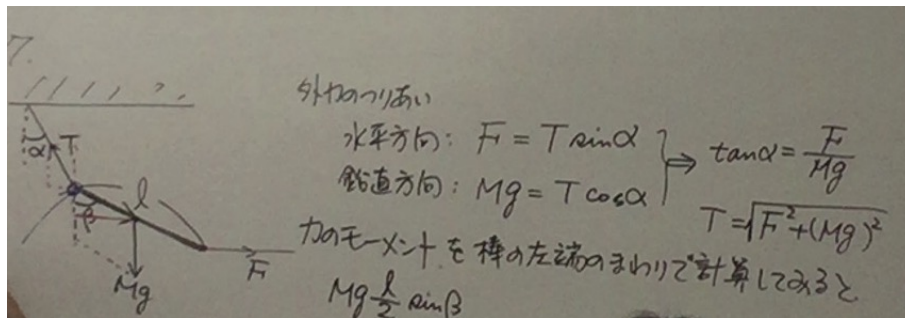 7.
外力のつりあい
水平方向: F = T sinα
鉛直方向: Mg = T cosα
⇒ tanα = F/Mg
T = √F²+(Mg)²
力のモーメントを棒の左端のまわりで計算してみると
Mg l/2 sinβ
α
T
l
β
Mg
F